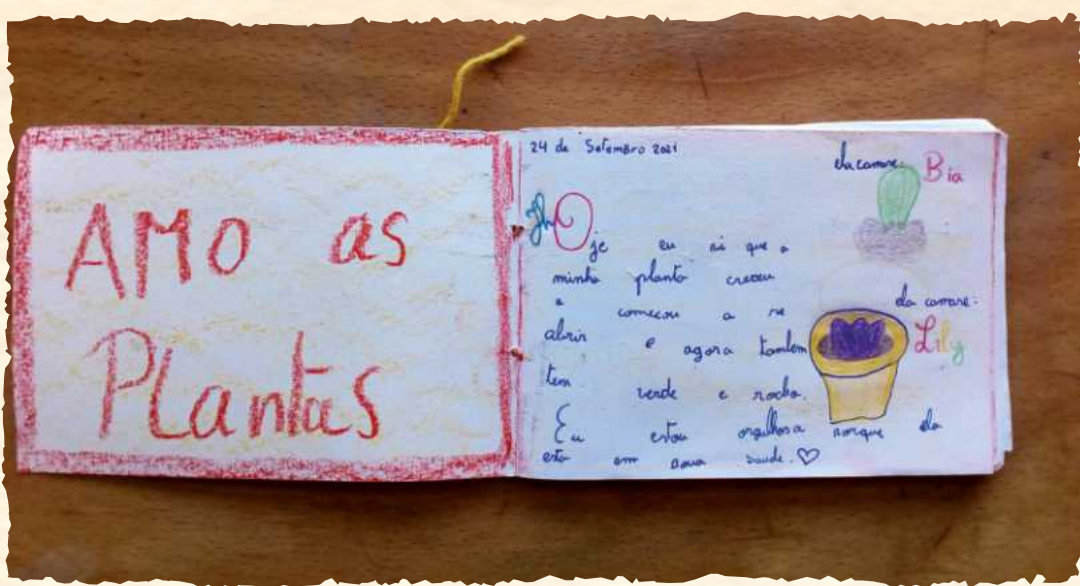 AMO as
Plantas
24 de Setembro 2021
ela camare:
Bia
Oje eu vi que a
minha planta creceu
e comecou a se
abrir e agora tambem
tem verde e rocho.
Eu estou orgulhosa porque ela
esta em boua saude.
ela camare:
Lily